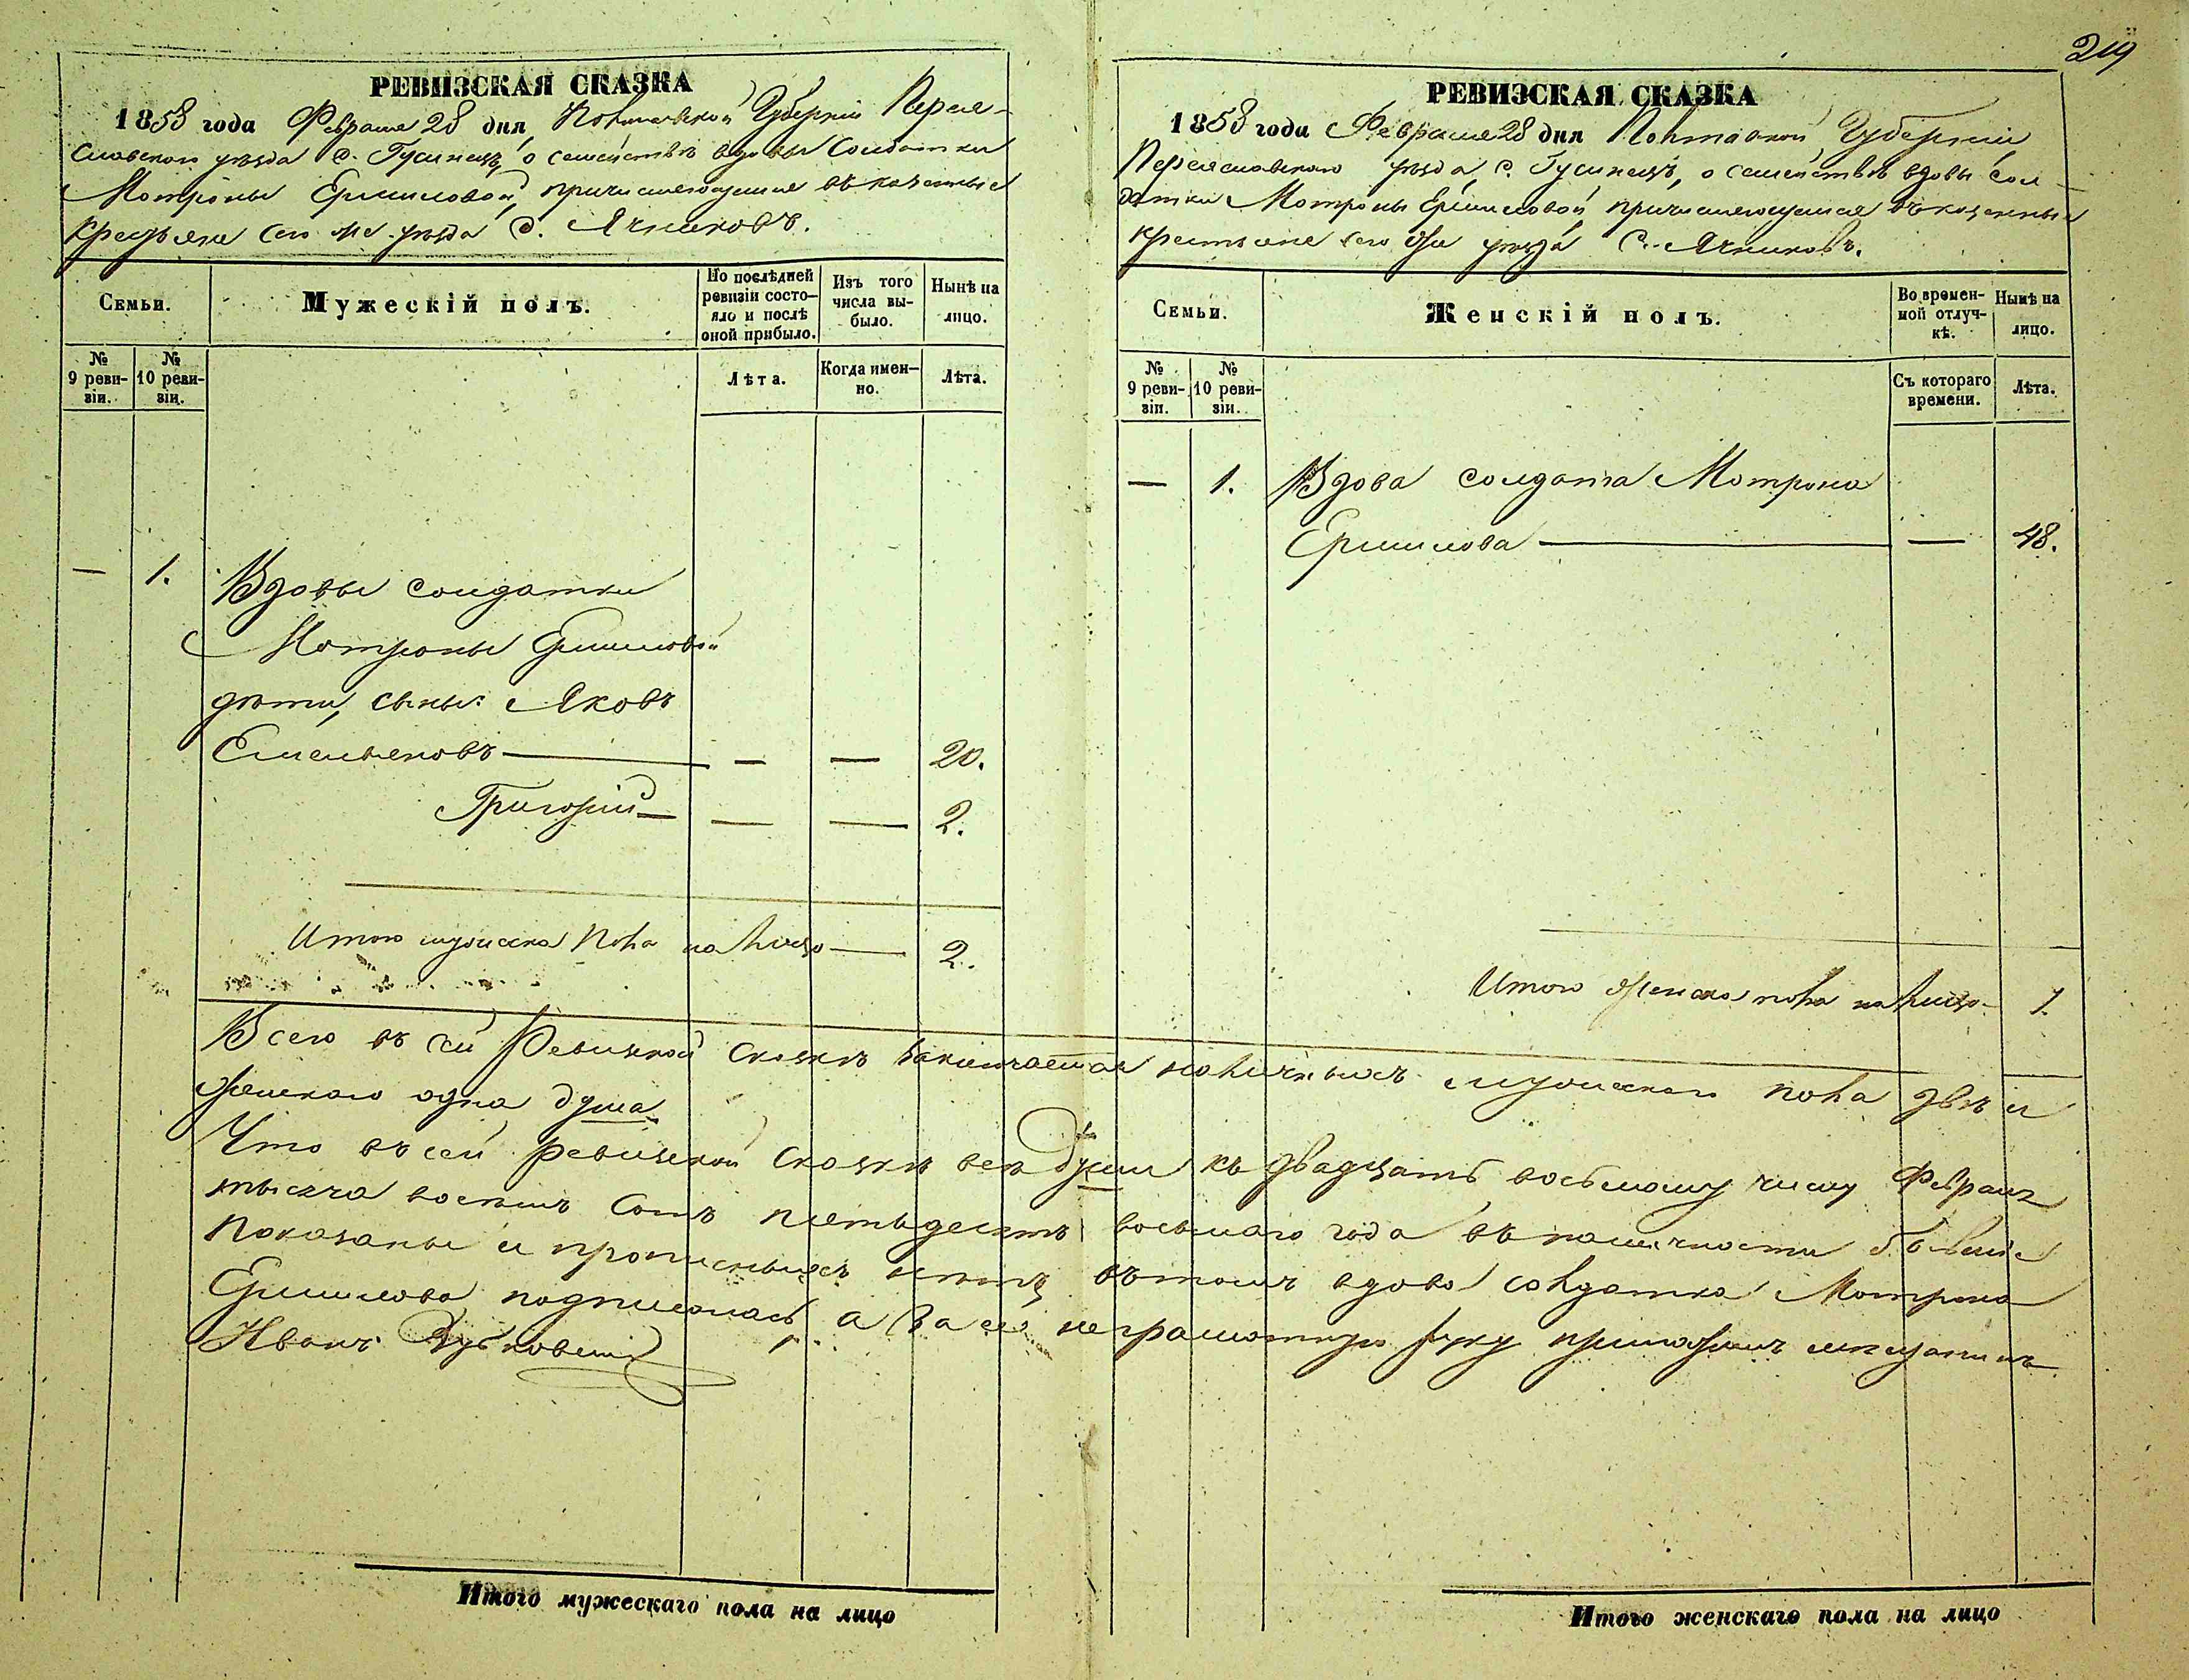 219
РЕВИЗСКАЯ СКАЗКА
1858 года Февраля 28 дня, Полтавской Губерніи Перея-
славского уезда С. Гусинецъ, о семействѣ вдовы Солдатки
Матроны Ермиловой, причисляющемся въ казенные
крестьяне сего же уезда С. Ячниковъ.
Семьи.
Мужескій полъ.
По послѣдней ревизіи состо-
яло и послѣ оной прибыло.
Изъ того числа вы-
было.
Нынѣ на лицо.
№ 9 реви-
зіи.
№ 10 реви-
зіи.
Лѣта.
Когда имен-
но.
Лѣта.
— 1. Вдовы солдатки
Мотроны Ермиловой
дѣти, сыны: Яковъ
Емельяновъ — — — 20.
Григорій — — — 2.
Итого мужеска пола на лицо — 2.
РЕВИЗСКАЯ СКАЗКА
1858 года Февраля 28 дня Полтавской Губерніи
Переяславского уезда, С. Гусинецъ, о семействѣ вдовы сол-
датки Мотроны Ермиловой причисляющемся въ казенные
крестьяне сего же уезда С. Ячниковъ.
Семьи.
Женскій полъ.
Во времен-
ной отлуч-
кѣ.
Нынѣ на лицо.
№ 9 реви-
зіи.
№ 10 реви-
зіи.
Съ котораго времени.
Лѣта.
— 1. Вдова солдатка Мотрона
Ермилова — — 48.
Итого женска пола на лицо — 1.
Всего въ сей Ревизской сказкѣ заключается наличныхъ мужескаго пола двѣ и
женскаго одна душа.
Что въ сей ревизской сказкѣ всѣ души къ двадцать восьмому числу Февраля
тысяча восемь сотъ пятьдесятъ восьмаго года въ наличности бывшіе
показаны и прописныхъ нѣтъ, въ томъ вдова солдатка Мотрона
Ермилова подписалась, а за ее неграмотную руку приложилъ мѣщанинъ
Иванъ
Итого мужескаго пола на лицо
Итого женскаго пола на лицо